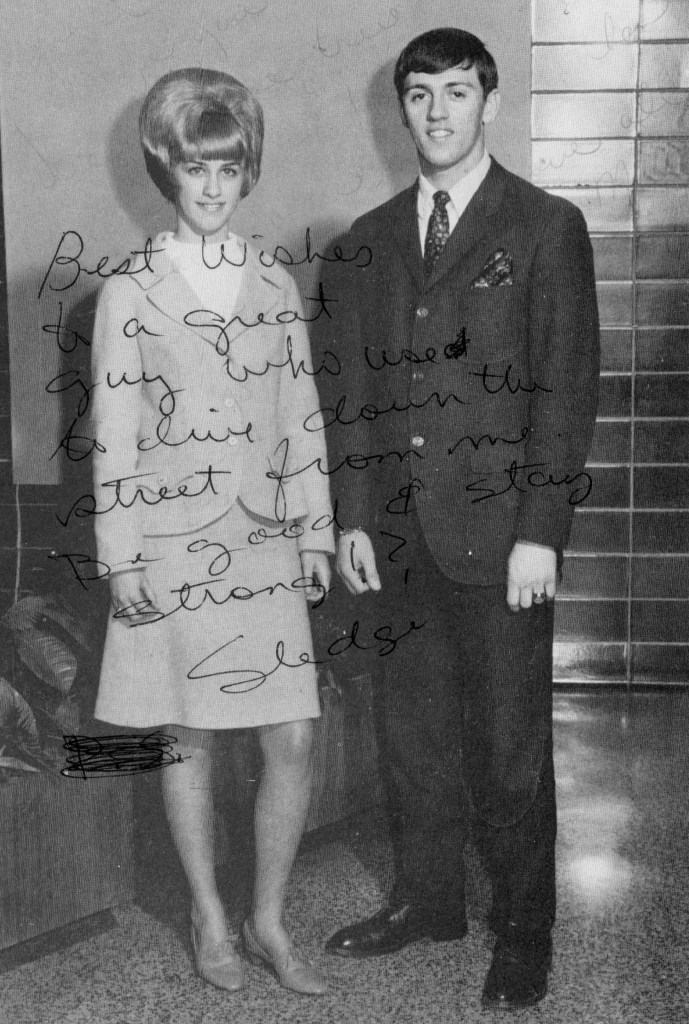 Best Wishes
to a great
guy who used
to live down the
street from me.
Be good & stay
strong !?
Sledge